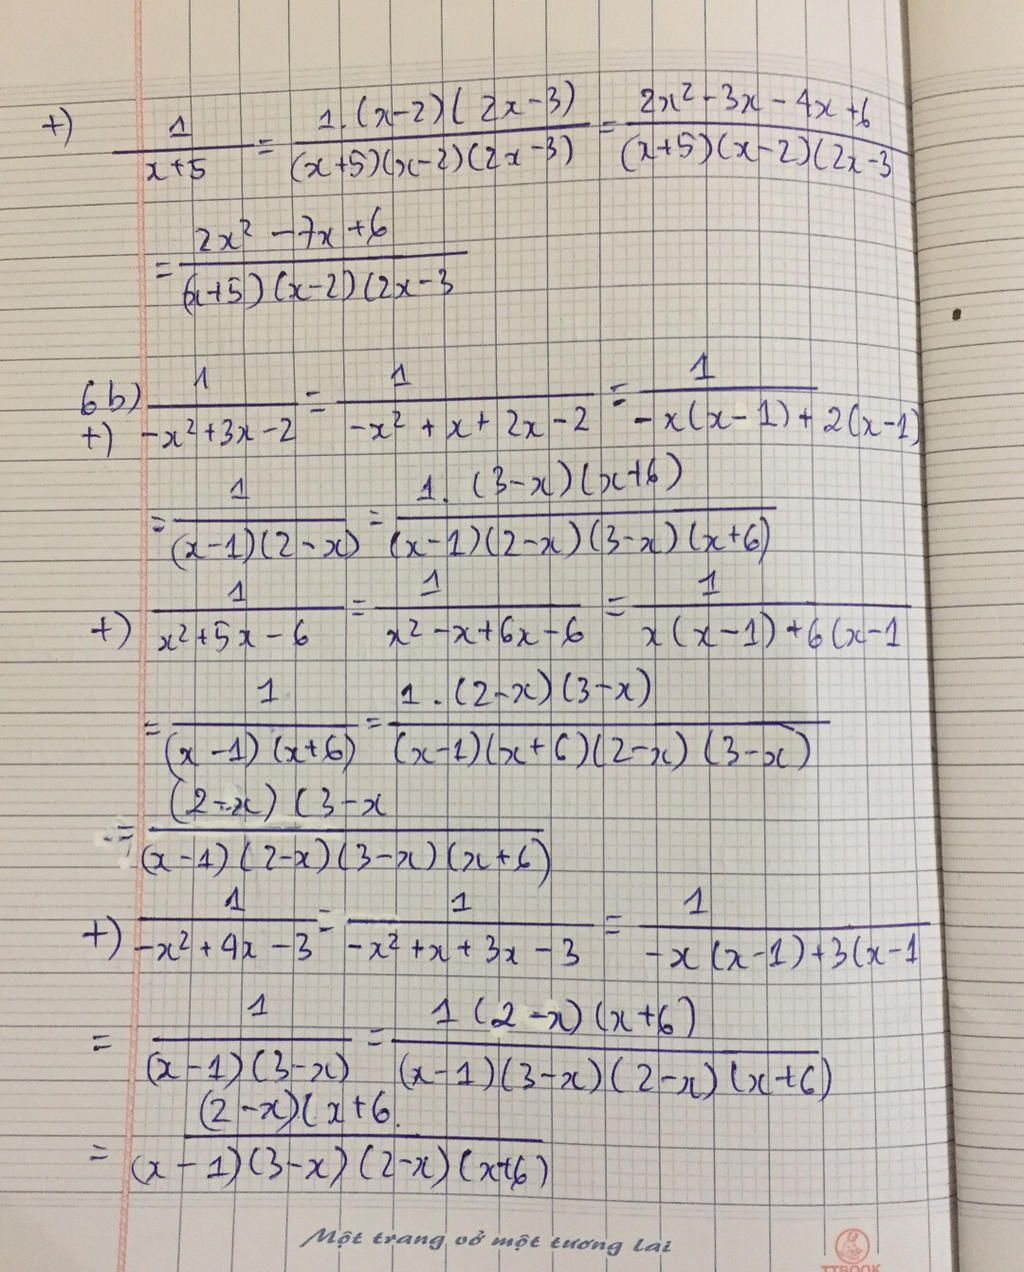 +) 1/(x+5) = 1.(x-2)(2x-3)/((x+5)(x-2)(2x-3)) = (2x²-3x-4x+6)/((x+5)(x-2)(2x-3
= (2x²-7x+6)/((x+5)(x-2)(2x-3
6b)
+) 1/(-x²+3x-2) = 1/(-x²+x+2x-2) = 1/(-x(x-1)+2(x-1)
= 1/((x-1)(2-x)) = 1.(3-x)(x+6)/((x-1)(2-x)(3-x)(x+6))
+) 1/(x²+5x-6) = 1/(x²-x+6x-6) = 1/(x(x-1)+6(x-1
= 1/((x-1)(x+6)) = 1.(2-x)(3-x)/((x-1)(x+6)(2-x)(3-x))
= (2-x)(3-x/((x-1)(2-x)(3-x)(x+6))
+) 1/(-x²+4x-3) = 1/(-x²+x+3x-3) = 1/(-x(x-1)+3(x-1
= 1/((x-1)(3-x)) = 1(2-x)(x+6)/((x-1)(3-x)(2-x)(x+6))
= (2-x)(x+6./((x-1)(3-x)(2-x)(x+6))
Một trang vở một tương lai
TTBOOK